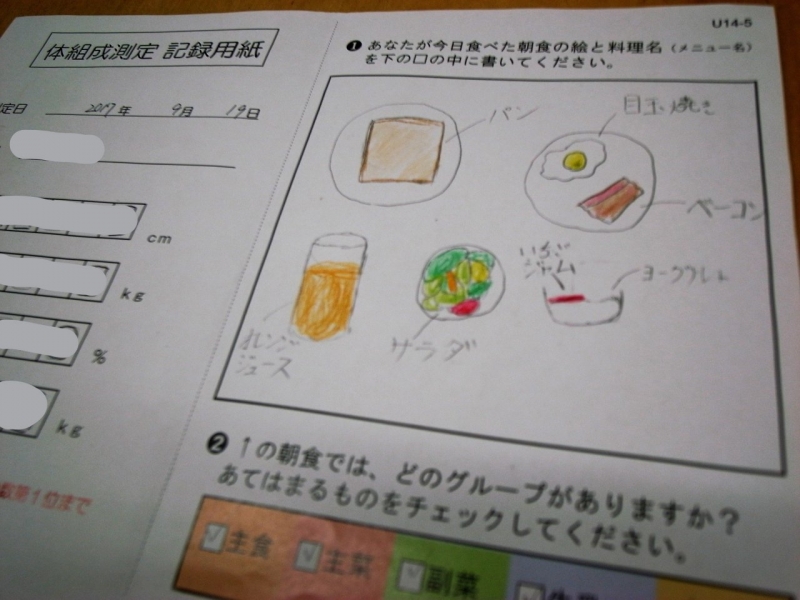 U14-5
体組成測定 記録用紙
定日 2017年 9月 19日
cm
kg
%
kg
第1位まで
❶ あなたが今日食べた朝食の絵と料理名（メニュー名）
を下の口の中に書いてください。
パン
目玉焼き
ベーコン
いちご
ジャム
ヨーグルト
オレンジ
ジュース
サラダ
❷ ↑の朝食では、どのグループがありますか？
あてはまるものをチェックしてください。
主食
主菜
副菜